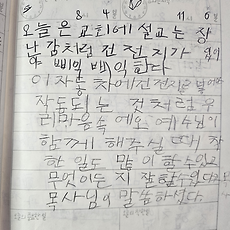 8 4 11 0
오늘은 교회에 설교는 장
난감처럼 전전지가 있어
야 삐익 빽 익한다
이 자동차에 전전지를 넣어야
작동되는 것처럼 우
리 마음속에도 예수님이
함께 해주실 때 착
한 일도 많이 할 수 있고
무엇이든지 잘할 수 있다고
목사님이 말씀하셨다.